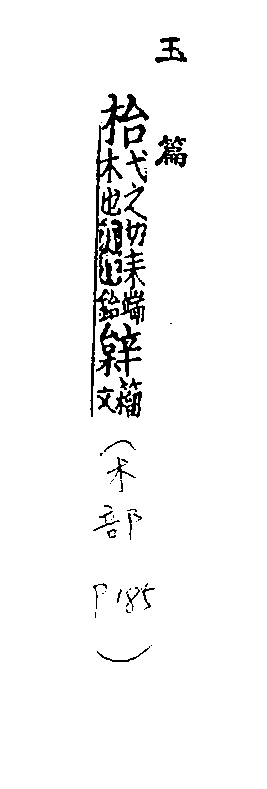 玉篇
枱弋之切耒端木也鈶籀文
(木部 P185)